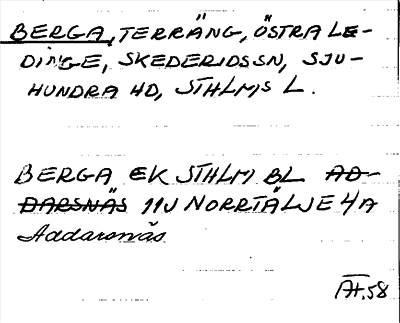 BERGA, TERRÄNG, ÖSTRA LE-
DINGE, SKEDERIDSSN, SJU-
HUNDRA HD, STHLMS L.
BERGA EK STHLM BL AD-
DARSNÄS 11U NORRTÄLJE 4A
Addarsnäs
AH.58